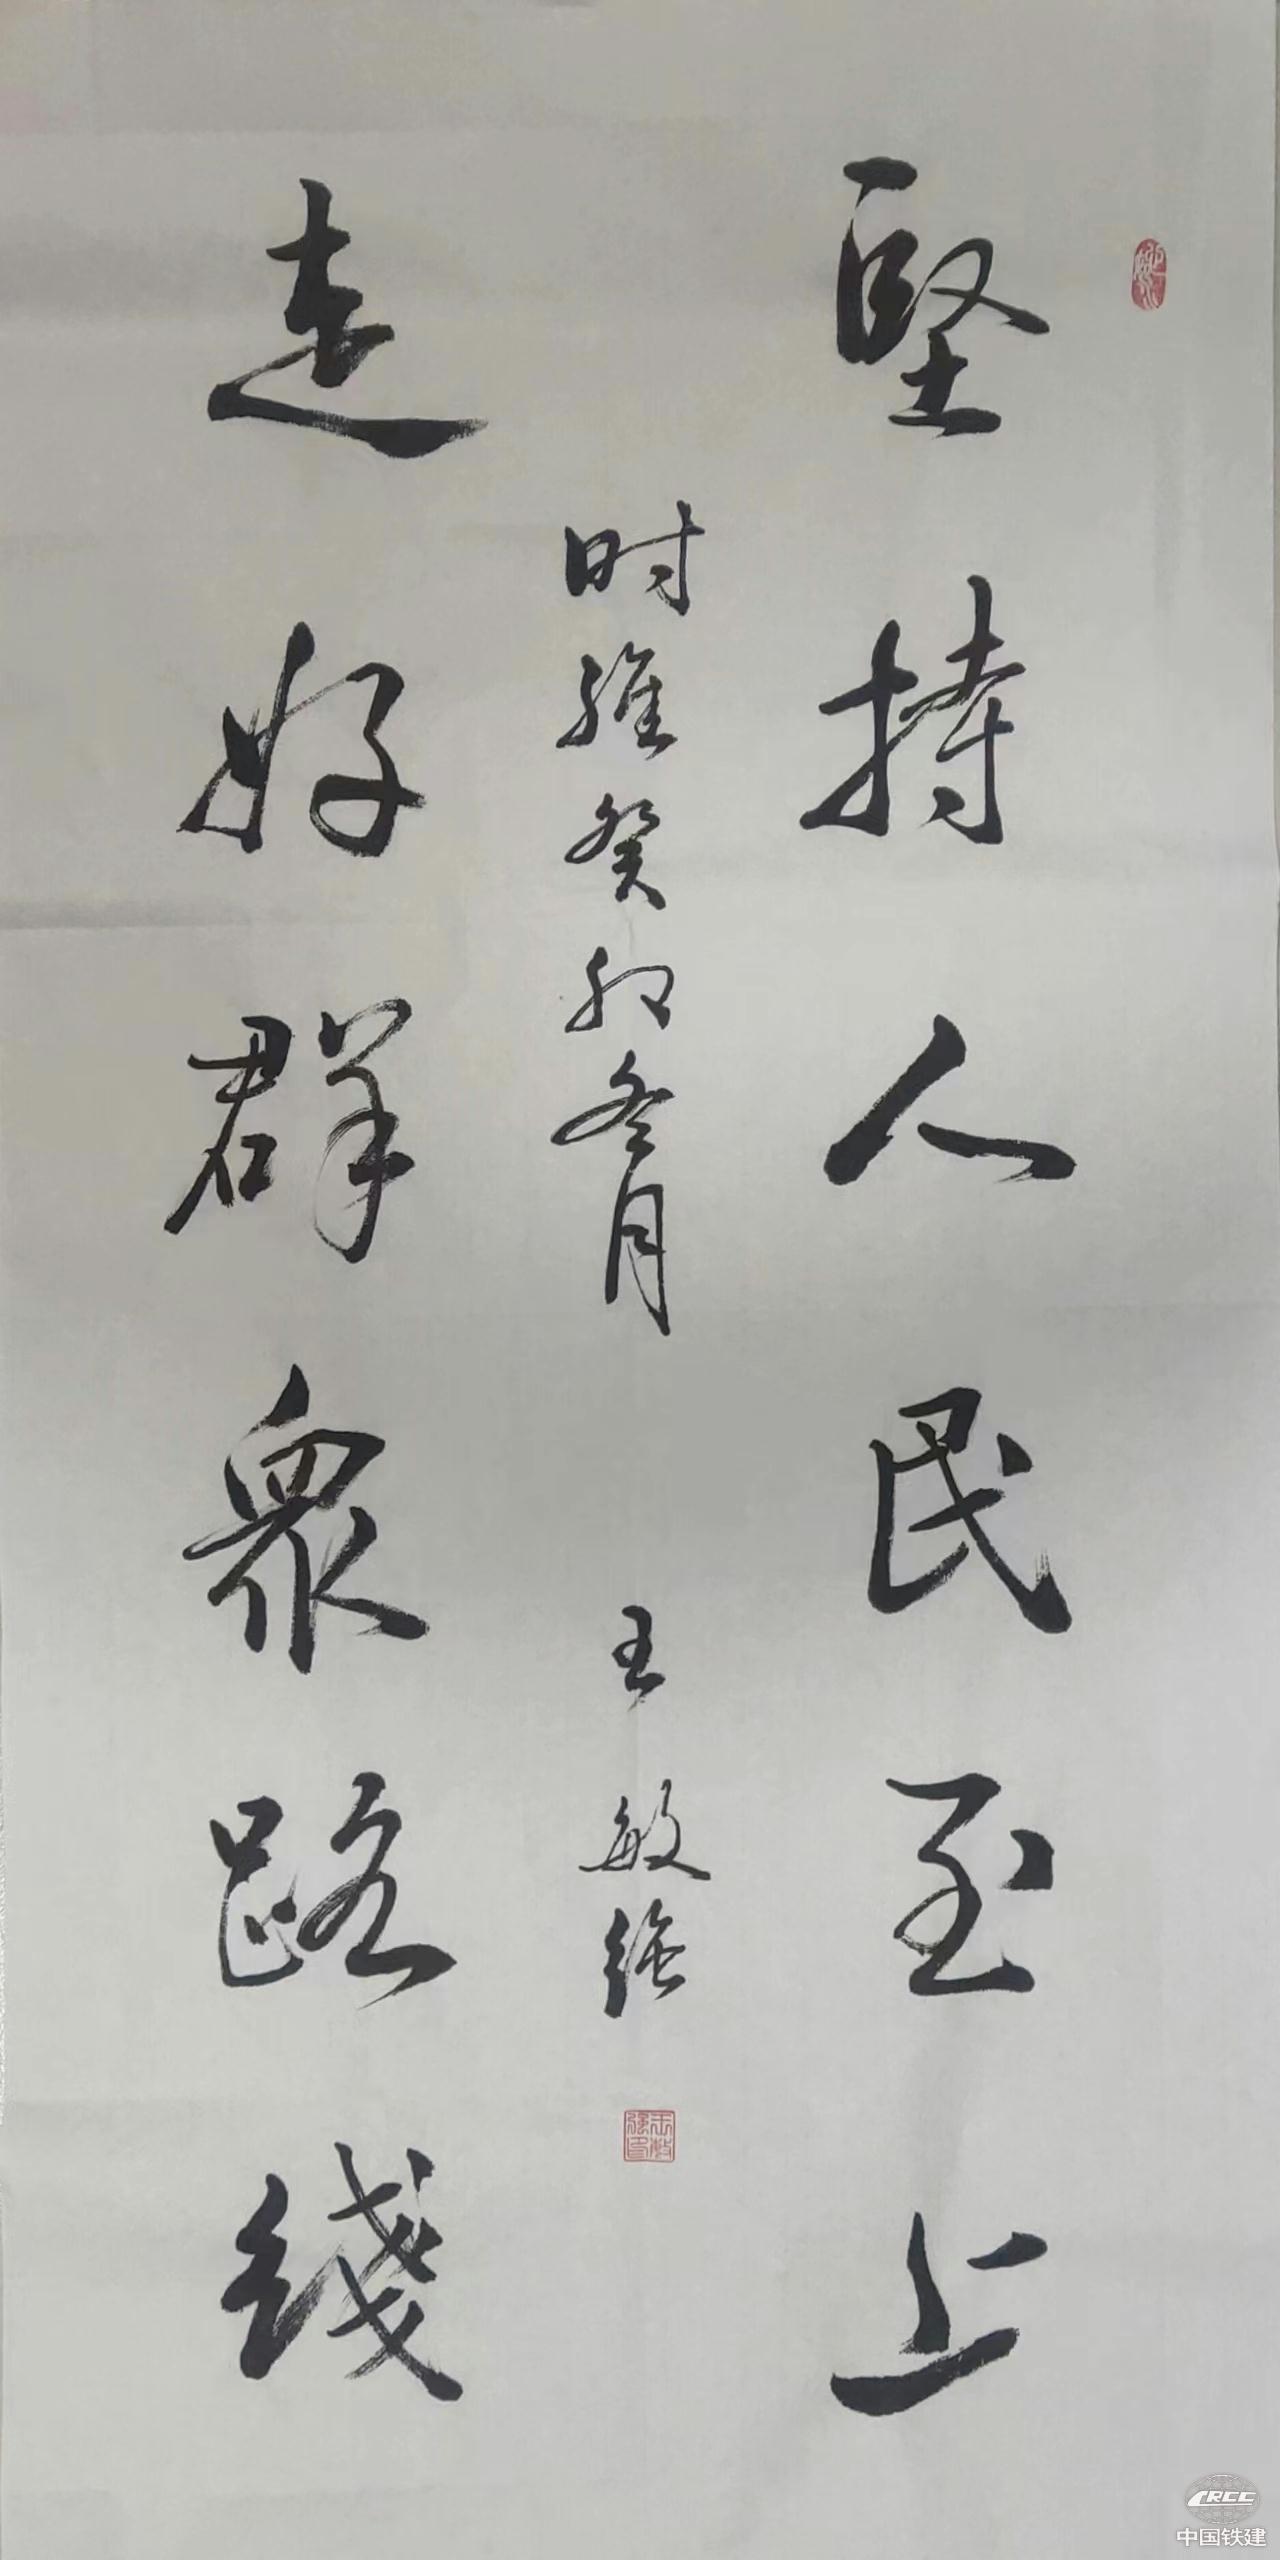 坚持人民至上
走好群眾路綫
时维癸卯冬月
王敏强
王敏强印
CRCC
中国铁建